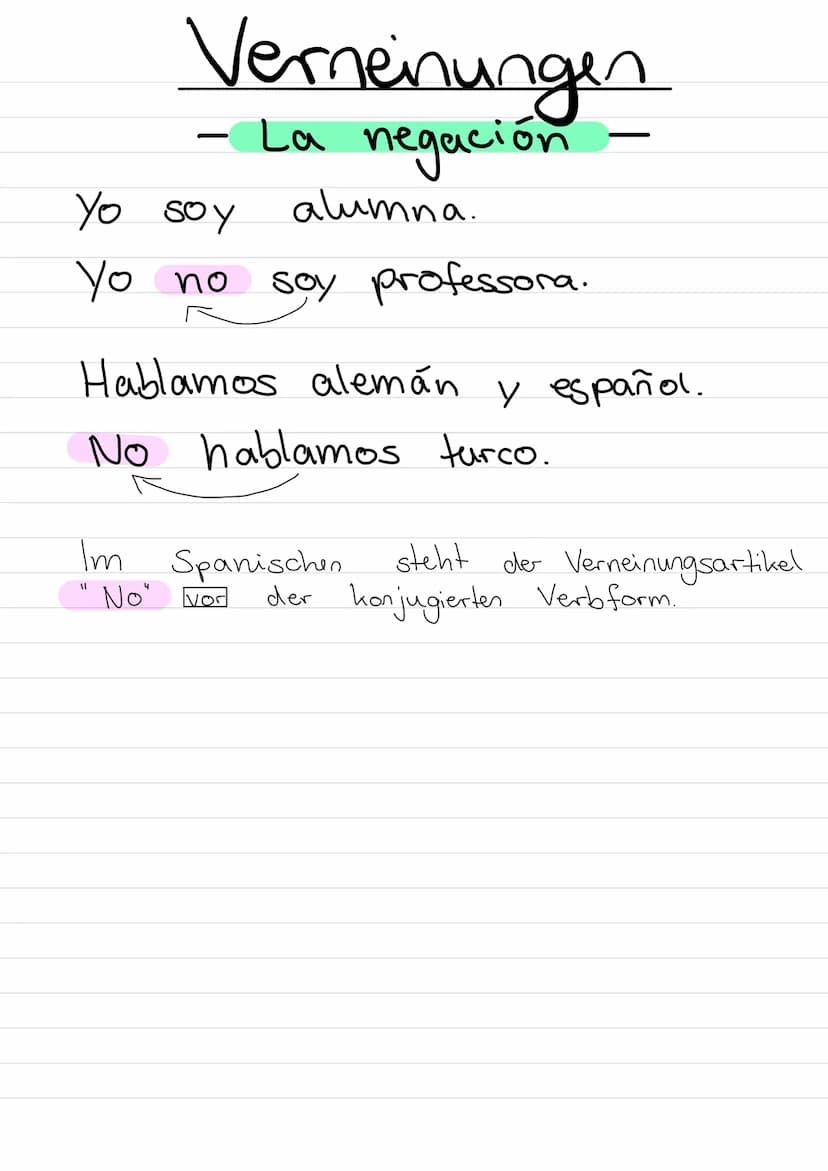 Verneinungen
– La negación –
Yo soy alumna.
Yo no soy professora.
Hablamos alemán y español.
No hablamos turco.
Im Spanischen steht der Verneinungsartikel
"No" vor der konjugierten Verbform.